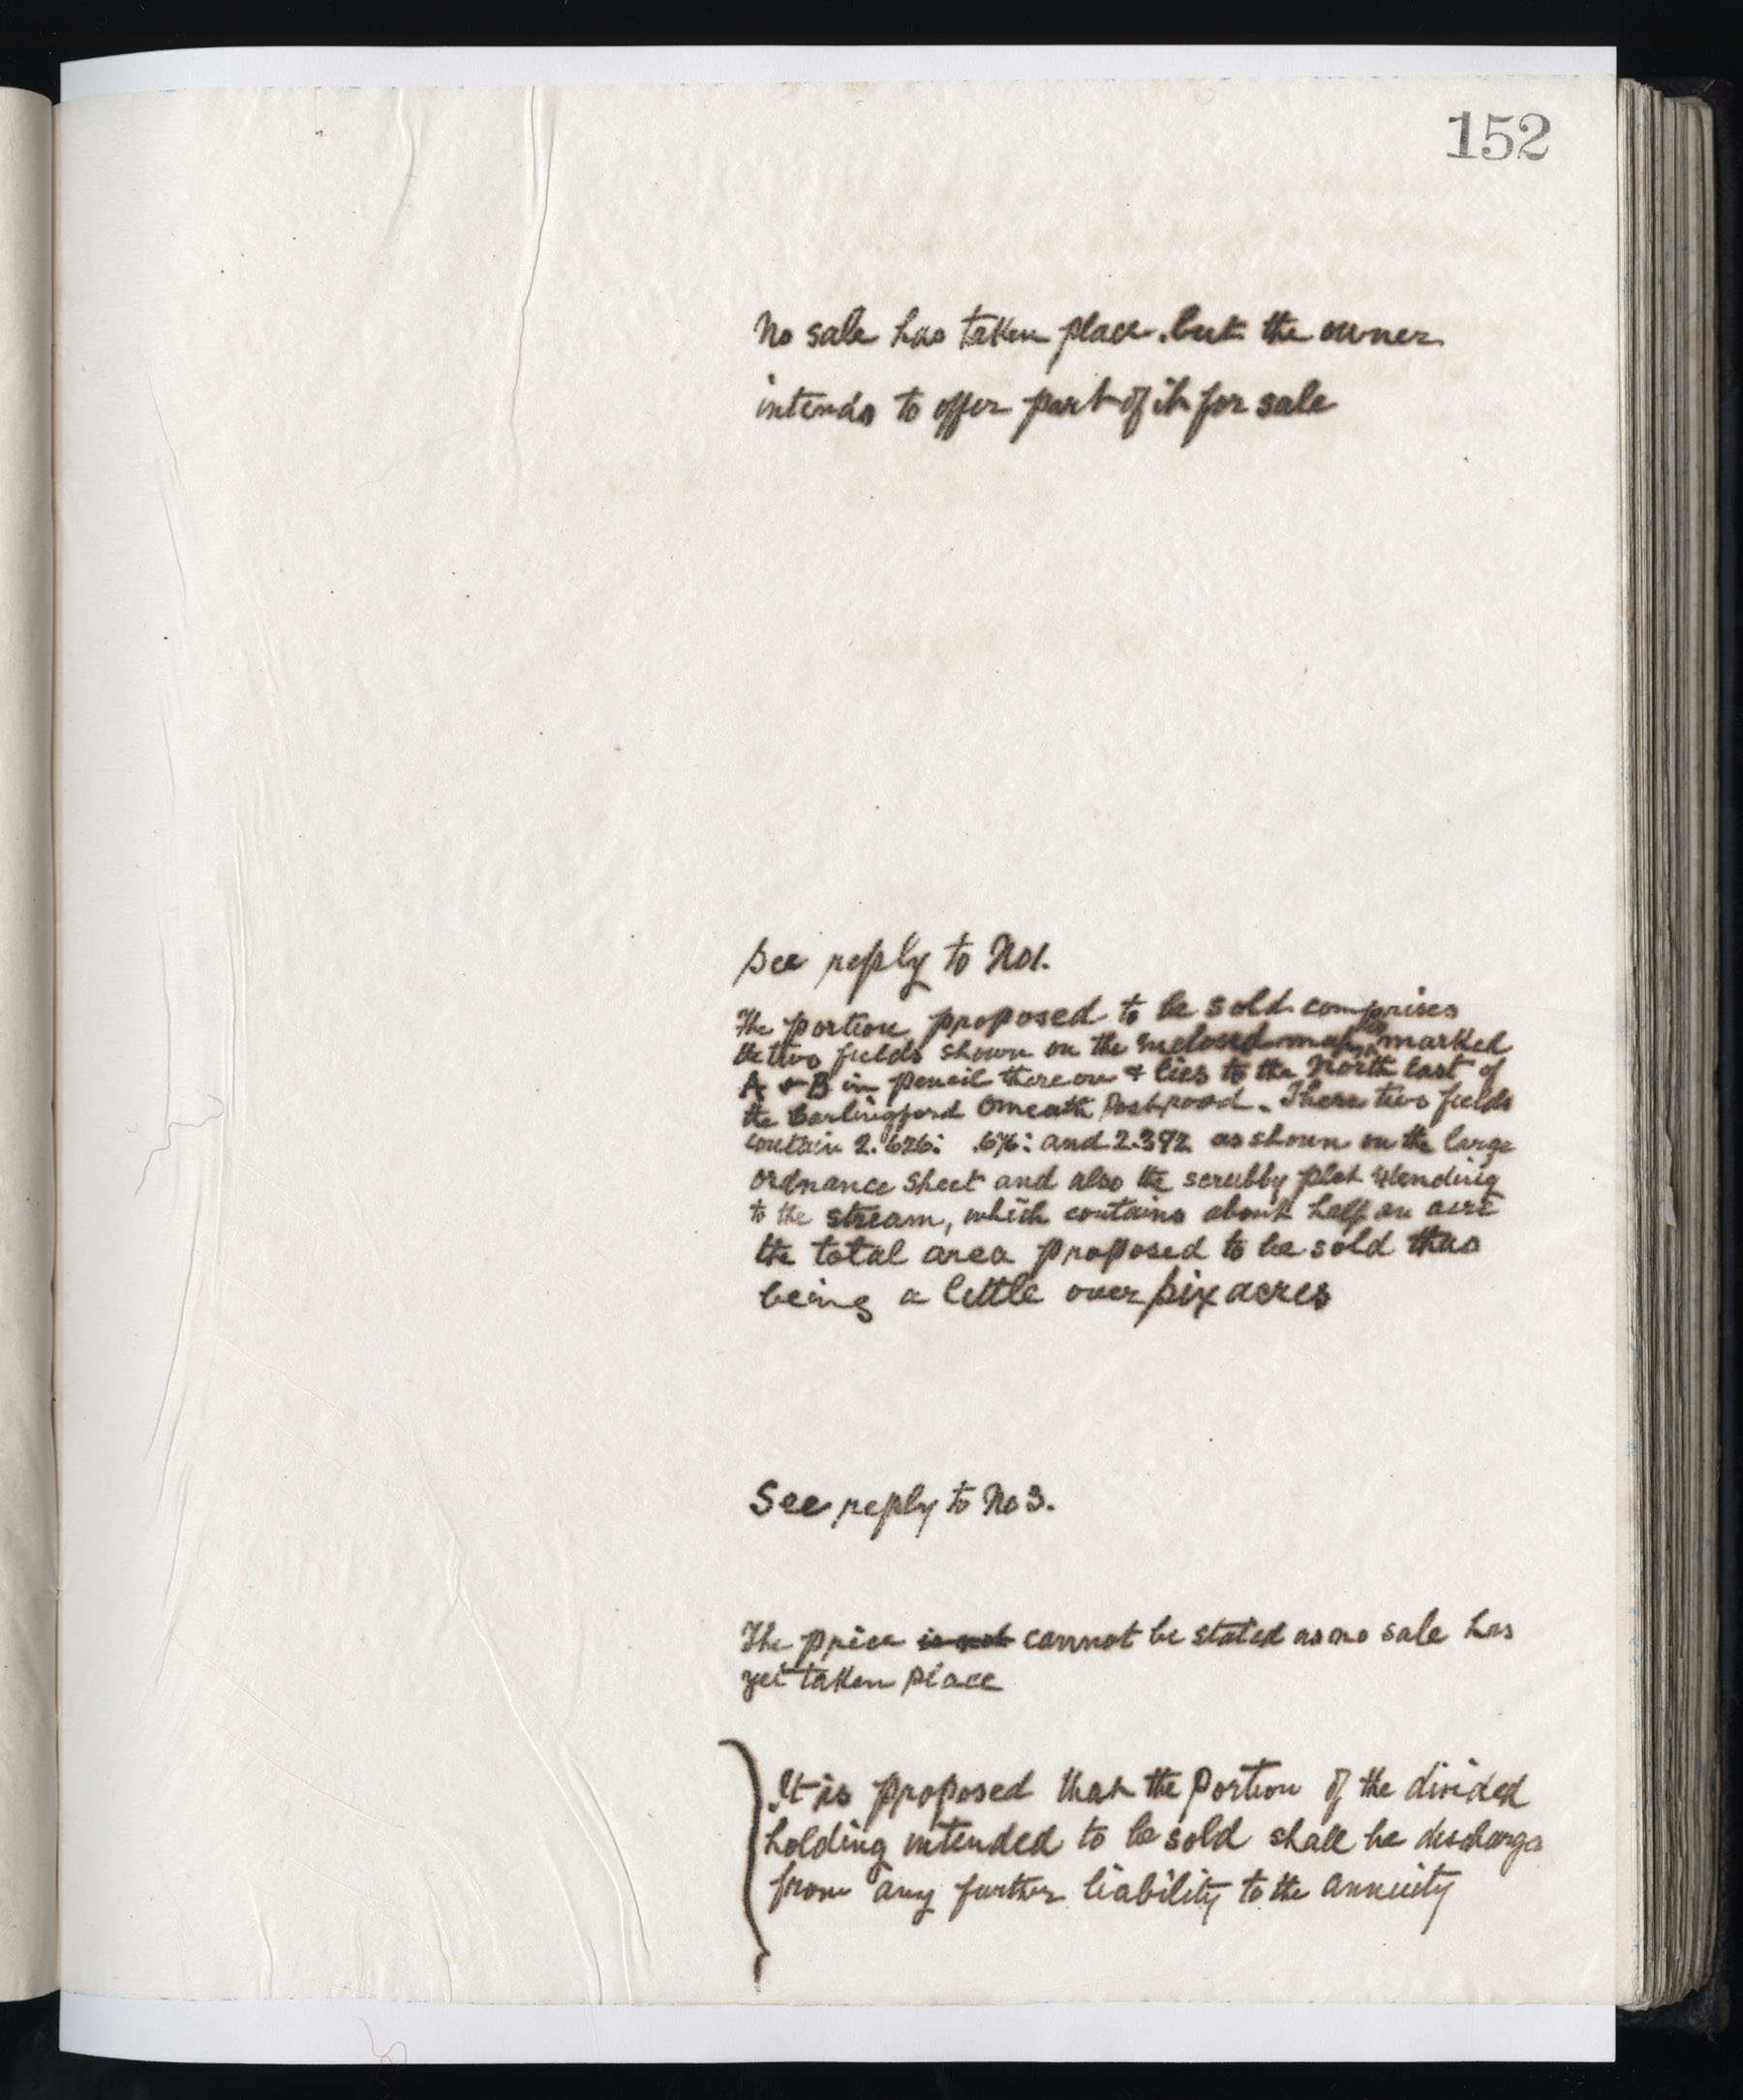 152
No sale has taken place but the owner
intends to offer part of it for sale
See reply to No 1.
The portion proposed to be sold comprises
the two fields shown on the inclosed map marked
A & B in pencil thereon & lies to the North East of
the Carlingford Omeath Post road. These two fields
contain 2.626: .676: and 2.392 as shown on the large
ordnance sheet and also the scrubby plot extending
to the stream, which contains about half an acre
the total area proposed to be sold thus
being a little over six acres
See reply to No 3.
The price is not cannot be stated as no sale has
yet taken place
It is proposed that the portion of the divided
holding intended to be sold shall be discharge
from any further liability to the annuity